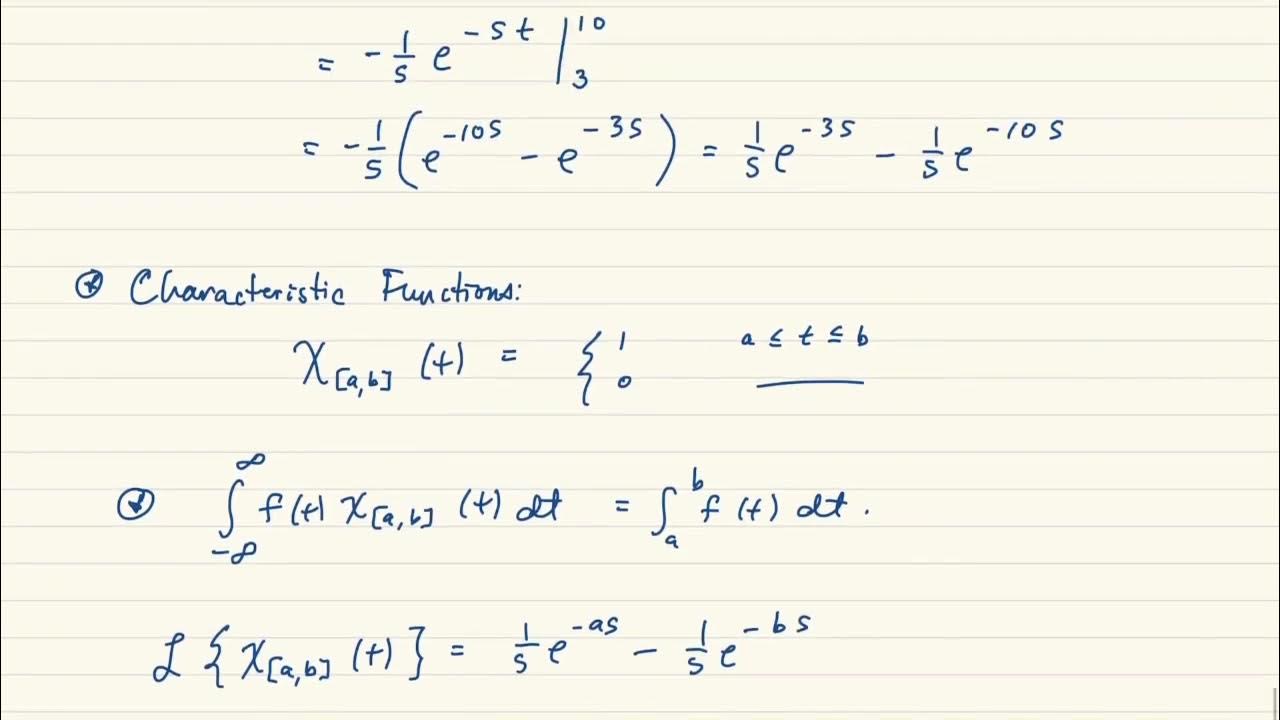 = -1/s e^{-st} |_3^{10}
= -1/s (e^{-10s} - e^{-3s}) = 1/s e^{-3s} - 1/s e^{-10s}
Characteristic Functions:
χ_{[a,b]} (t) = { 1 a ≤ t ≤ b
0 ___
∫_{-∞}^{∞} f(t) χ_{[a,b]} (t) dt = ∫_a^b f(t) dt.
ℒ { χ_{[a,b]} (t) } = 1/s e^{-as} - 1/s e^{-bs}